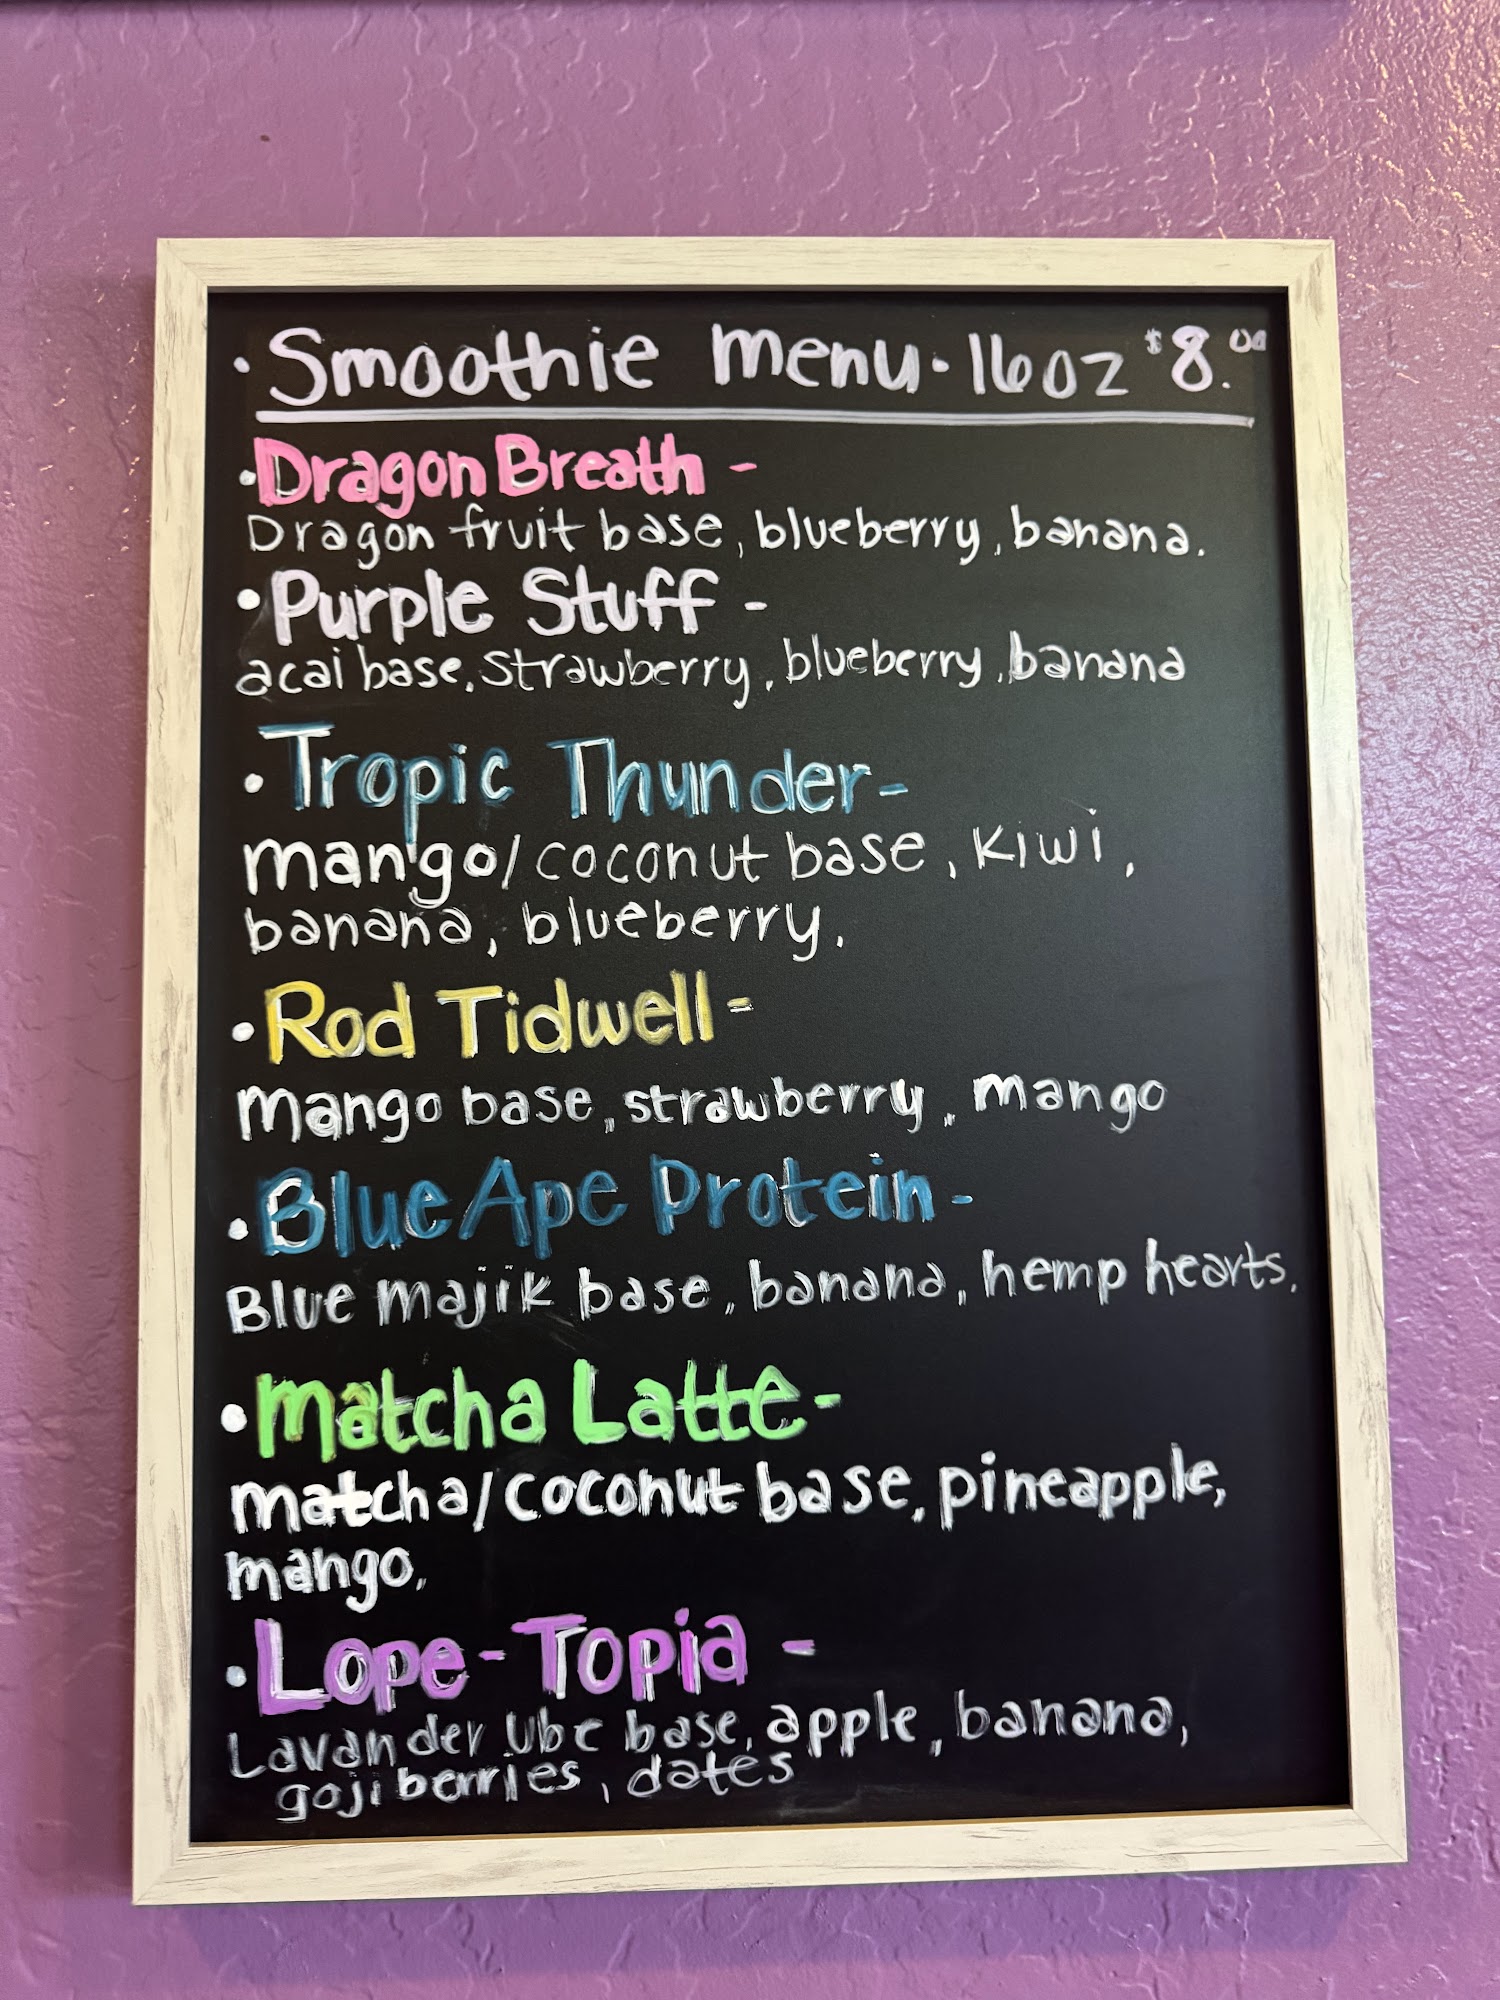 • Smoothie menu • 16oz $8.00
• Dragon Breath -
Dragon fruit base, blueberry, banana.
• Purple Stuff -
acai base, strawberry, blueberry, banana
• Tropic Thunder -
mango/coconut base, kiwi,
banana, blueberry.
• Rod Tidwell -
mango base, strawberry, mango
• Blue Ape Protein -
Blue majik base, banana, hemp hearts.
• matcha Latte -
matcha/coconut base, pineapple,
mango.
• Lope-Topia -
Lavander Ube base, apple, banana,
goji berries, dates